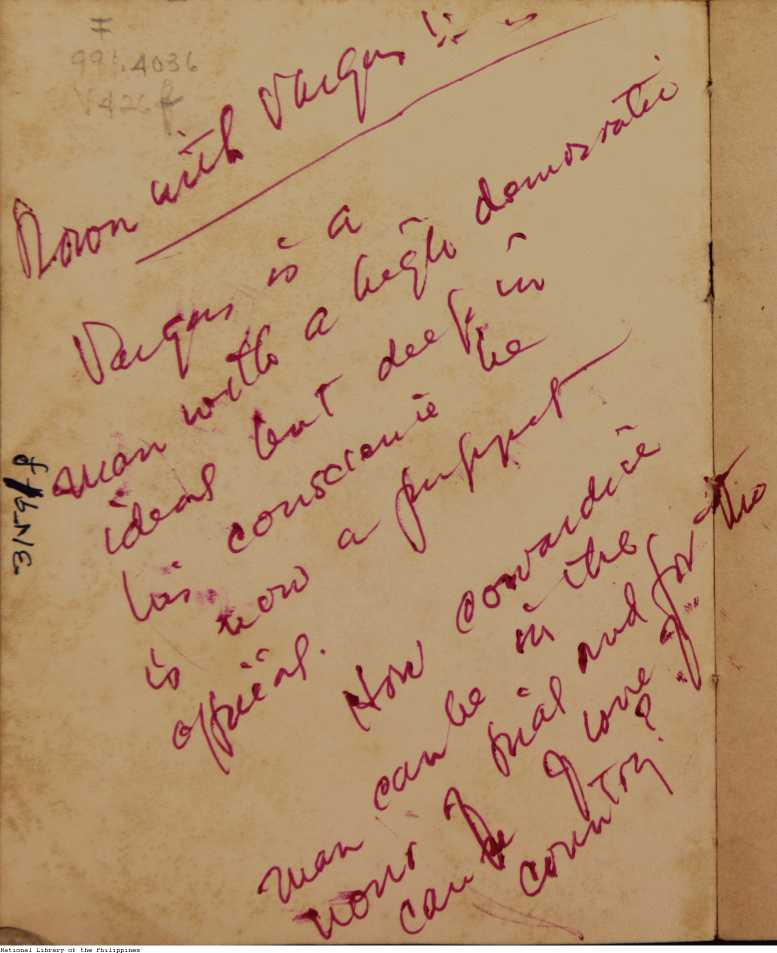 I
991.4036
V426f
Down with Vargas!!
Vargas is a
man with a high democratic
ideal but deep in
his conscience he
is now a puppet
official.
How cowardice
man can be in the
hour of trial and for the
can be of love of
country?
31959
National Library of the Philippines